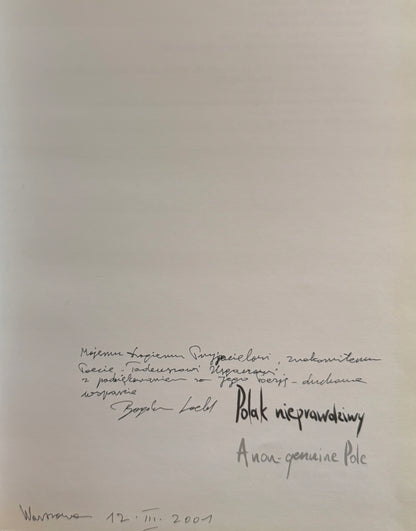 Mojemu drogiemu Przyjacielowi, znakomitemu
Poecie, Tadeuszowi
z podziękowaniem za Jego poezję - duchowe
wsparcie
Bogdan
Polak nieprawdziwy
A non-genuine Pole
Warszawa 12. III. 2001